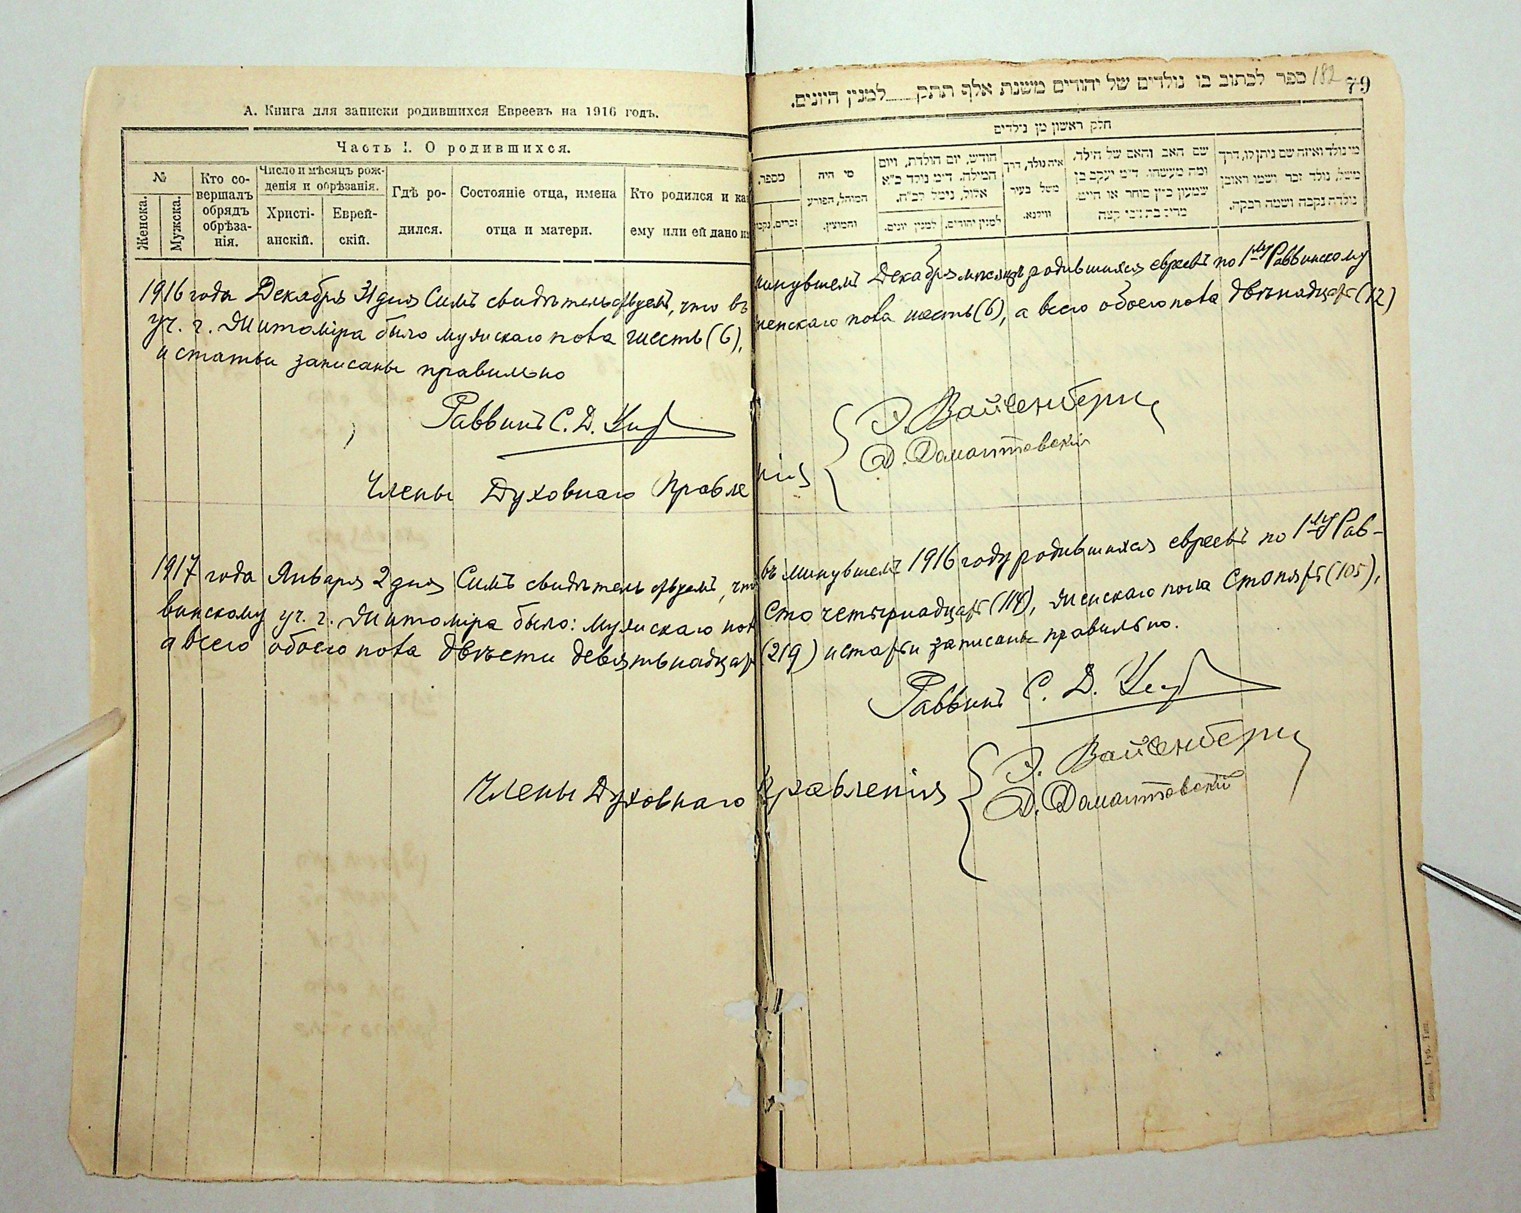 А. Книга для записки родившихся Евреевъ на 1916 годъ.
Часть I. О родившихся.
№
Женска.
Мужска.
Кто со-
вершалъ
обрядъ
обрѣза-
нія.
Число и мѣсяцъ рож-
денія и обрѣзанія.
Христі-
анскій.
Еврей-
скій.
Гдѣ ро-
дился.
Состояніе отца, имена
отца и матери.
Кто родился и ка
ему или ей дано
182 79
ספר לכתוב בו נולדים של יהודים משנת אלף תתק למנין היונים.
חלק ראשון מן נולדים
מי נולד ואיזה שם ניתן לו, דרך
משל, נולד זכר ושמו ראובן
נולדה נקבה ושמה רבקה.
שם האב והאם של הילד,
ומה מעשהו. ד״מ יעקב בן
שמעון
סוחר או חייט
איה נולד, דרך
משל בעיר
ווילנא.
חודש, יום הולדת, ויום
המילה. ד״מ נולד כ״א
אלול, נימול לכ״ח.
למנין יהודים.
למנין יונים.
מי היה
המוהל, הפורע
והמוצץ.
מספר.
זכרים.
1916 года Декабря 31 дня Симъ свидѣтельствуемъ, что въ минувшемъ Декабрѣ мѣсяцѣ родившихся евреевъ по 1му Раввинскому
уч. г. Житоміра было мужскаго пола шесть (6), женскаго пола шесть (6), а всего обоего пола двѣнадцать (12)
и статьи записаны правильно
Раввинъ С. Д.
Члены Духовнаго Правленія
Э. Вайсенбергъ
Д. Домантовскій
1917 года Января 2 дня Симъ свидѣтельствуемъ, что въ минувшемъ 1916 году родившихся евреевъ по 1му Рав-
винскому уч. г. Житоміра было: мужскаго пола Сто четырнадцать (114), женскаго пола Сто пять (105),
а всего обоего пола двѣсти девятьнадцать (219) и статьи записаны правильно.
Раввинъ С. Д.
Члены Духовнаго Правленія
Э. Вайсенбергъ
Д. Домантовскій
Губ. Тип.